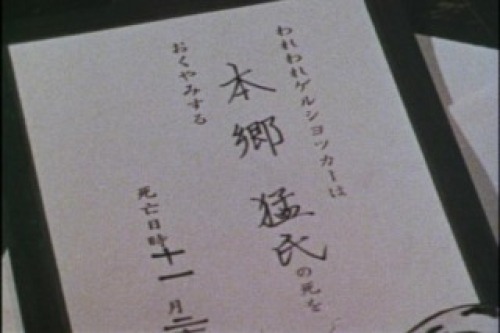 われわれゲルショッカーは
本郷猛氏の死を
おくやみする
死亡日時十一月二